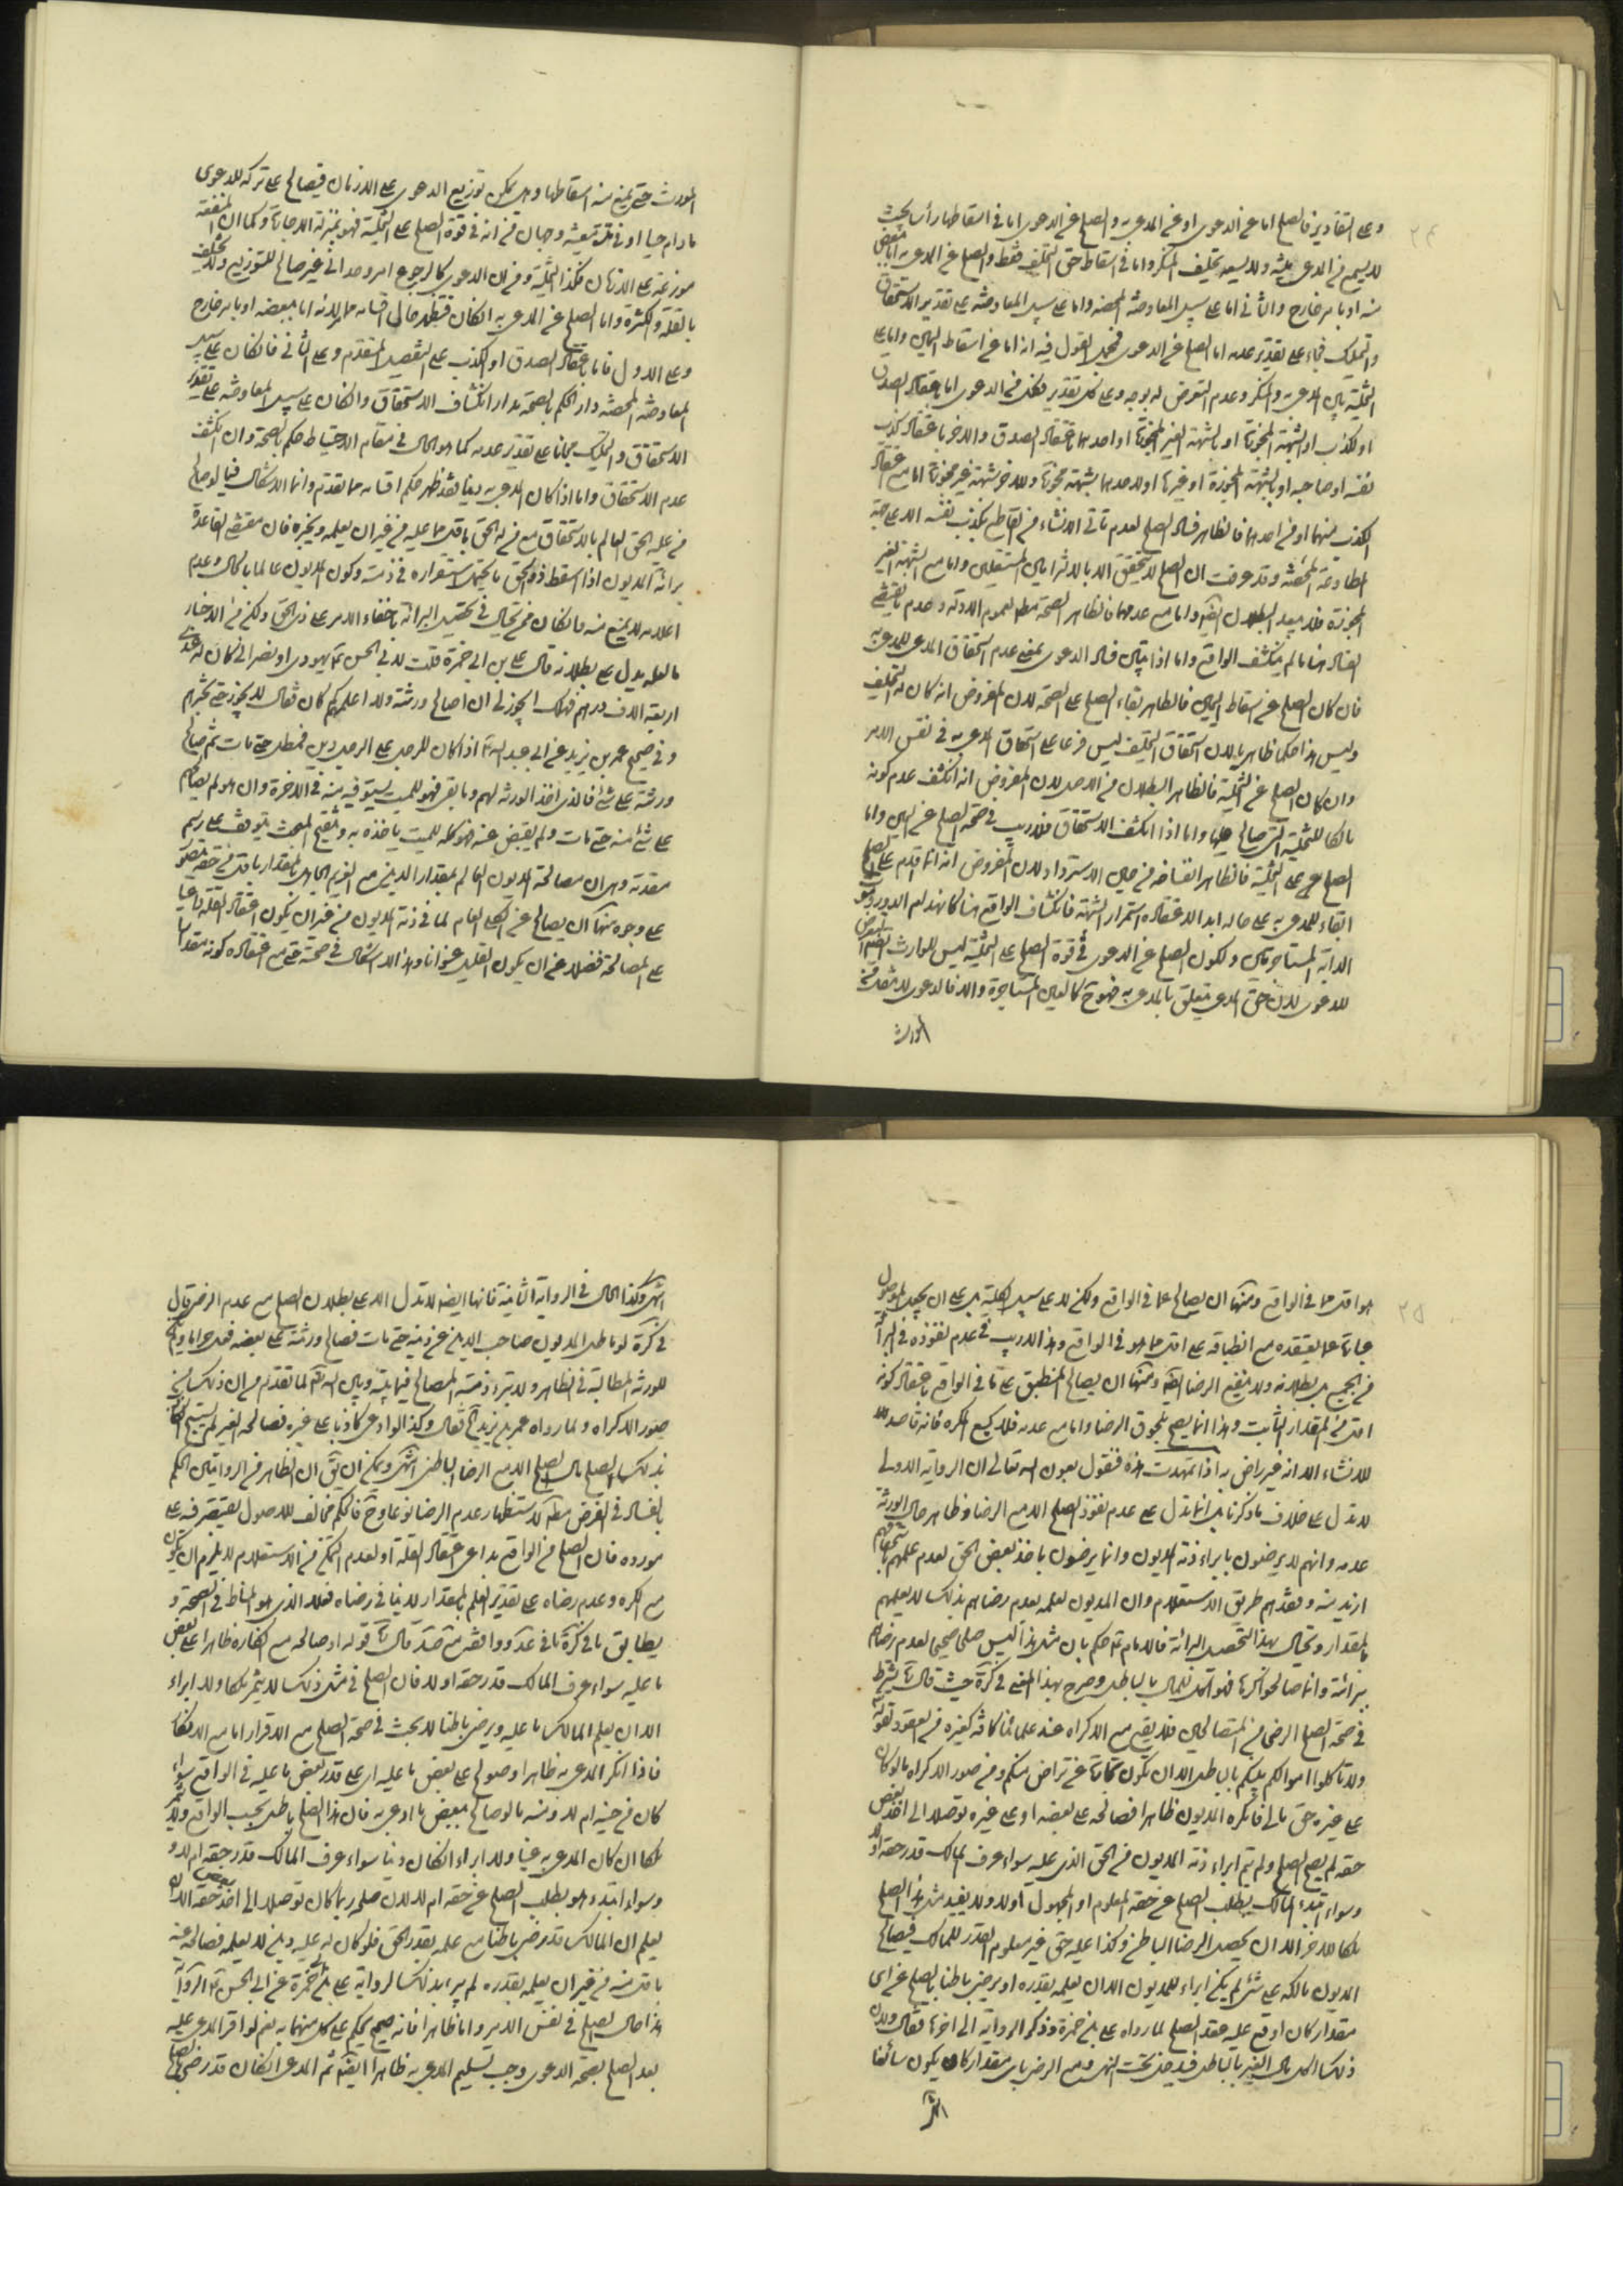 ٢٤
وعلى التقادير فالصلح اما عن الدعوى او عن المدعى به والصلح عن الدعوى اما فى اسقاطها رأسا بحيث
لا يسمع من المدعى بينة ولا يسعه تحليف المنكر واما فى اسقاط حق التحليف فقط والصلح عن المدعى به اما ببعض
منه او بامر خارج والثانى اما على سبيل المعاوضة المحضة واما على سبيل المعاوضة على تقدير الاستحقاق
والتمليك مجانا على تقدير عدمه اما الصلح عن الدعوى فمحل القول فيه انه اما عن اسقاط اليمين واما على
التخلية بين المدعى والمنكر وعدم التعرض له بوجه وعلى كل تقدير فكل من الدعوى اما باعتقاد الصدق
او الكذب او الشبهة المجوزة او بالشبهة الغير المجوزة او احدهما باعتقاد الصدق والاخر باعتقاد كذب
نفسه او صاحبه او بالشبهة المجوزة او غيرها او لاحدهما بشبهة مجوزة وللاخر بشبهة غير مجوزة اما مع اعتقاد
الكذب منهما او من احدهما فالظاهر فساد الصلح لعدم تأتى الانشاء من القاطع بكذب نفسه الا على جهة
المطاوعة المحضة وقد عرفت ان الصلح لا يتحقق الا بالانشائين المستقلين واما مع الشبهة الغير
المجوزة فلا يبعد البطلان ايضا واما مع عدمها فالظاهر الصحة مطلقا لعموم الادلة وعدم ما يقتضى
الفساد هنا ما لم ينكشف الواقع واما اذا تبين فساد الدعوى بمعنى عدم استحقاق المدعى للمدعى به
فان كان الصلح عن اسقاط اليمين فالظاهر بقاء الصلح على الصحة لان المفروض انه كان له التحليف
وليس هذا حكما ظاهريا لان استحقاق التحليف ليس فرعا على استحقاق المدعى به فى نفس الامر
وان كان الصلح عن التخلية فالظاهر البطلان من الاصل لان المفروض انه انكشف عدم كونه
مالكا للتخلية التى صالح عليها واما اذا انكشف الاستحقاق فلا ريب فى صحة الصلح عن اليمين واما
الصلح على التخلية فالظاهر انتقاضه من حين الاسترداد لان المفروض انه انما اقدم على الصلح
ابقاء للمدعى به على حاله ابدا لاعتقاده استمرار الشبهة فانكشاف الواقع هنا كانهدام الدار وموت
الدابة المستأجرتين ولكون الصلح عن الدعوى فى قوة الصلح على التخلية ليس للوارث التعرض
للدعوى لان حق المدعى متعلق بالمدعى به فهو ح كالعين المستأجرة والا فالدعوى لا تنتقل الى
المورث
المورث حتى يمنع منه اسقاطها وهل يمكن توزيع الدعوى على الازمان فيصالح على تركه للدعوى
ما دام حيا او فى مدة معينة وجهان من انه فى قوة الصلح على التخلية فهو بمنزلة الاجارة وكما ان المنفعة
موزعة على الازمان فكذا التخلية ومن ان الدعوى كالرجوع امر وحدانى غير صالح للتوزيع ولا يختلف
بالقلة والكثرة واما الصلح عن المدعى به ان كان فتظهر حال اقسامه مما مر لانه اما ببعضه او بامر خارج
وعلى الاول فاما باعتقاد الصدق او الكذب على التفصيل المتقدم وعلى الثانى فان كان على سبيل
المعاوضة المحضة دار الحكم بالصحة مدار انكشاف الاستحقاق وان كان على سبيل المعاوضة على تقدير
الاستحقاق والتمليك مجانا على تقدير عدمه كما هو الحال فى مقام الاحتياط حكم بالصحة وان انكشف
عدم الاستحقاق واما اذا كان المدعى به دينا فقد ظهر حكم اقسامه مما تقدم وانما الاشكال فيما لو صالح
من عليه الحق العالم بالاستحقاق مع من له الحق باقل مما عليه من غير ان يعلمه ويخبره فان مقتضى القاعدة
برائة المديون اذا اسقط ذو الحق ما يحتمل استقراره فى ذمته وكون المديون عالما بالحال وعدم
اعلامه لا يمنع منه وان كان ممن تحايل فى تحصيل البرائة باخفاء الامر على ذى الحق ولكن من الاخبار
ما لعله يدل على بطلانه قال على بن ابى حمزة قلت لابى الحسن ع يهودى او نصرانى كان له عندى
اربعة الاف درهم فهلك ايجوز لى ان اصالح ورثته ولا اعلمهم كم كان فقال لا يجوز حتى تخبرهم
وفى صحيح عمر بن يزيد عن ابى عبد الله ع اذا كان للرجل على الرجل دين فمطله حتى مات ثم صالح
ورثته على شئ فالذى اخذ الورثة لهم وما بقى فهو للميت يستوفيه منه فى الاخرة وان هو لم يصالحهم
على شئ منه حتى مات ولم يقبض عنه فهو كله للميت ياخذه به وتنقيح المبحث يتوقف على رسم
مقدمة وهى ان مصالحة المديون العالم بمقدار الدين مع الغريم الجاهل بالمقدار باقل من حقه يتصور
على وجوه منها ان يصالح عن الكلى العام لما فى ذمة المديون من غير ان يكون اعتقاد القلة داعيا
على المصالحة فضلا عن ان يكون القليل عنوانا وهذا لا اشكال فى صحته حتى مع اعتقاده كونه مقدارا
٢٥
هو اقل مما فى الواقع ومنها ان يصالح عما فى الواقع ولكن لا على سبيل الكلية بل على ان يجعل الموصول
عبارة عما يعتقده مع انطباقه على اقل مما هو فى الواقع وهذا لا ريب فى عدم نفوذه فى البرائة
من الجميع بل بطلانه ولا ينفع الرضا ايضا ومنها ان يصالح المنطبق على ما فى الواقع باعتقاد كونه
اقل من المقدار الثابت وهذا انما يصح بلحوق الرضا واما مع عدمه فلا كبيع المكره فانه قاصد
للانشاء الا انه غير راض به اذا تمهدت هذه فنقول بعون الله تعالى ان الرواية الاولى
لا تدل على خلاف ما ذكرنا بل انما تدل على عدم نفوذ الصلح الا مع الرضا وظاهر حال الورثة
عدمه وانهم لا يرضون بابراء ذمة المديون وانما يرضون باخذ بعض الحق لعدم علمهم باستحقاقهم
ازيد منه وفقدهم طريق الاستعلام وان المديون لعلمه بعدم رضاهم بذلك لا يعلمهم
بالمقدار وتحايل بهذا لتحصيل البرائة فالامام ع حكم بان مثل هذا ليس صلحا صحيحا لعدم رضاهم
ببرائته وانما صالحوا كرها فهو اكل للمال بالباطل وصرح بهذا المعنى فى كرة حيث قال يشترط
فى صحة الصلح الرضى من المتصالحين فلا يقع مع الاكراه عند علمائنا كافة كغيره من العقود لقوله تعالى
ولا تاكلوا اموالكم بينكم بالباطل الا ان تكون تجارة عن تراض منكم ومن صور الاكراه ما لو كان
على غيره حق مالى فانكره المديون ظاهرا فصالحه على بعضه او على غيره توصلا الى اخذ بعض
حقه لم يصح الصلح ولم يتم ابراء ذمة المديون من الحق الذى عليه سواء عرف المالك قدر حقه او لا
وسواء ابتدء المالك بطلب الصلح عن حقه المعلوم او المجهول او لا ولا يفيد مثل هذا الصلح
ملكا للاخر الا ان يحصل الرضا الباطن وكذا عليه حق غير معلوم القدر للمالك فيصالح
المديون مالكه على شئ لم يكن ابراء للمديون الا ان يعلمه بقدره او يرضى باطنا بالصلح عن اى
مقدار كان اوقع عليه عقد الصلح لما رواه على بن حمزة وذكر الرواية الى اخرها فقال ولان
ذلك اكل مال الغير بالباطل فيدخل تحت النهى ومع الرضى باى مقدار كان يكون سائغا
انتهى
انتهى وكذا الحال فى الرواية الثانية فانها ايضا لا تدل الا على بطلان الصلح مع عدم الرضى قال
فى كرة لو ماطل المديون صاحب الدين عن دينه حتى مات فصالح ورثته على بعضه فعل حراما ولم يكن
للورثة المطالبة فى الظاهر ولا تبرء ذمة المصالح فيما بينه وبين الله تعالى لما تقدم من ان ذلك من
صور الاكراه ولما رواه عمر بن يزيد الخ فقال وكذا لو ادعى كاذبا على غيره فصالحه الغير لم يستبح الكاذب
بذلك الصلح مال الصلح الا مع الرضا الباطن انتهى ويمكن ان يق ان الظاهر من الروايتين الحكم
بالفساد فى الفرض مطلقا لاستظهار عدم الرضا نوعا وح فالحكم مخالف للاصول يقتصر فيه على
مورده فان الصلح فى الواقع بداعى اعتقاد القلة او لعدم التمكن من الاستعلام لا يلزم ان يكون
مع الكره وعدم رضاه على تقدير العلم بالمقدار لا ينافى رضاه فعلا الذى هو المناط فى الصحة و
يطابق ما فى كرة ما فى عد ووافقه مع صد قال قوله او صالحه مع انكاره ظاهرا على بعض
ما عليه سواء عرف المالك قدر حقه او لا فان الصلح فى مثل ذلك لا يثمر ملكا ولا ابراء
الا ان يعلم المالك ما عليه ويرضى باطنا لا بحث فى صحة الصلح مع الاقرار اما مع الانكار
فاذا انكر المدعى به ظاهرا وصولح على بعض ما عليه اى على قدر بعض ما عليه فى الواقع سواء
كان من جنسه ام لا ومنه ما لو صالح ببعض ما ادعى به فان هذا الصلح باطل بحسب الواقع ولا يثمر
ملكا ان كان المدعى به عينا ولا ابراء ان كان دينا سواء عرف المالك قدر حقه ام لا و
سواء ابتدء هو بطلب الصلح عن حقه ام لا لان صلحه ربما كان توصلا الى اخذ بعض حقه الا ان
يعلم ان المالك قد رضى باطنا مع علمه بقدر الحق فلو كان له عليه دين لا يعلمه فصالحه عنه
باقل منه من غير ان يعلمه بقدره لم يبرء بذلك لرواية على بن حمزة عن ابى الحسن ع الرواية
هذا حال الصلح فى نفس الامر واما ظاهرا فانه صحيح يحكم على كل منهما به نعم لو اقر المدعى عليه
بعد الصلح بصحة الدعوى وجب تسليم المدعى به ظاهرا ايضا ثم المدعى ان كان قد رضى بالصلح